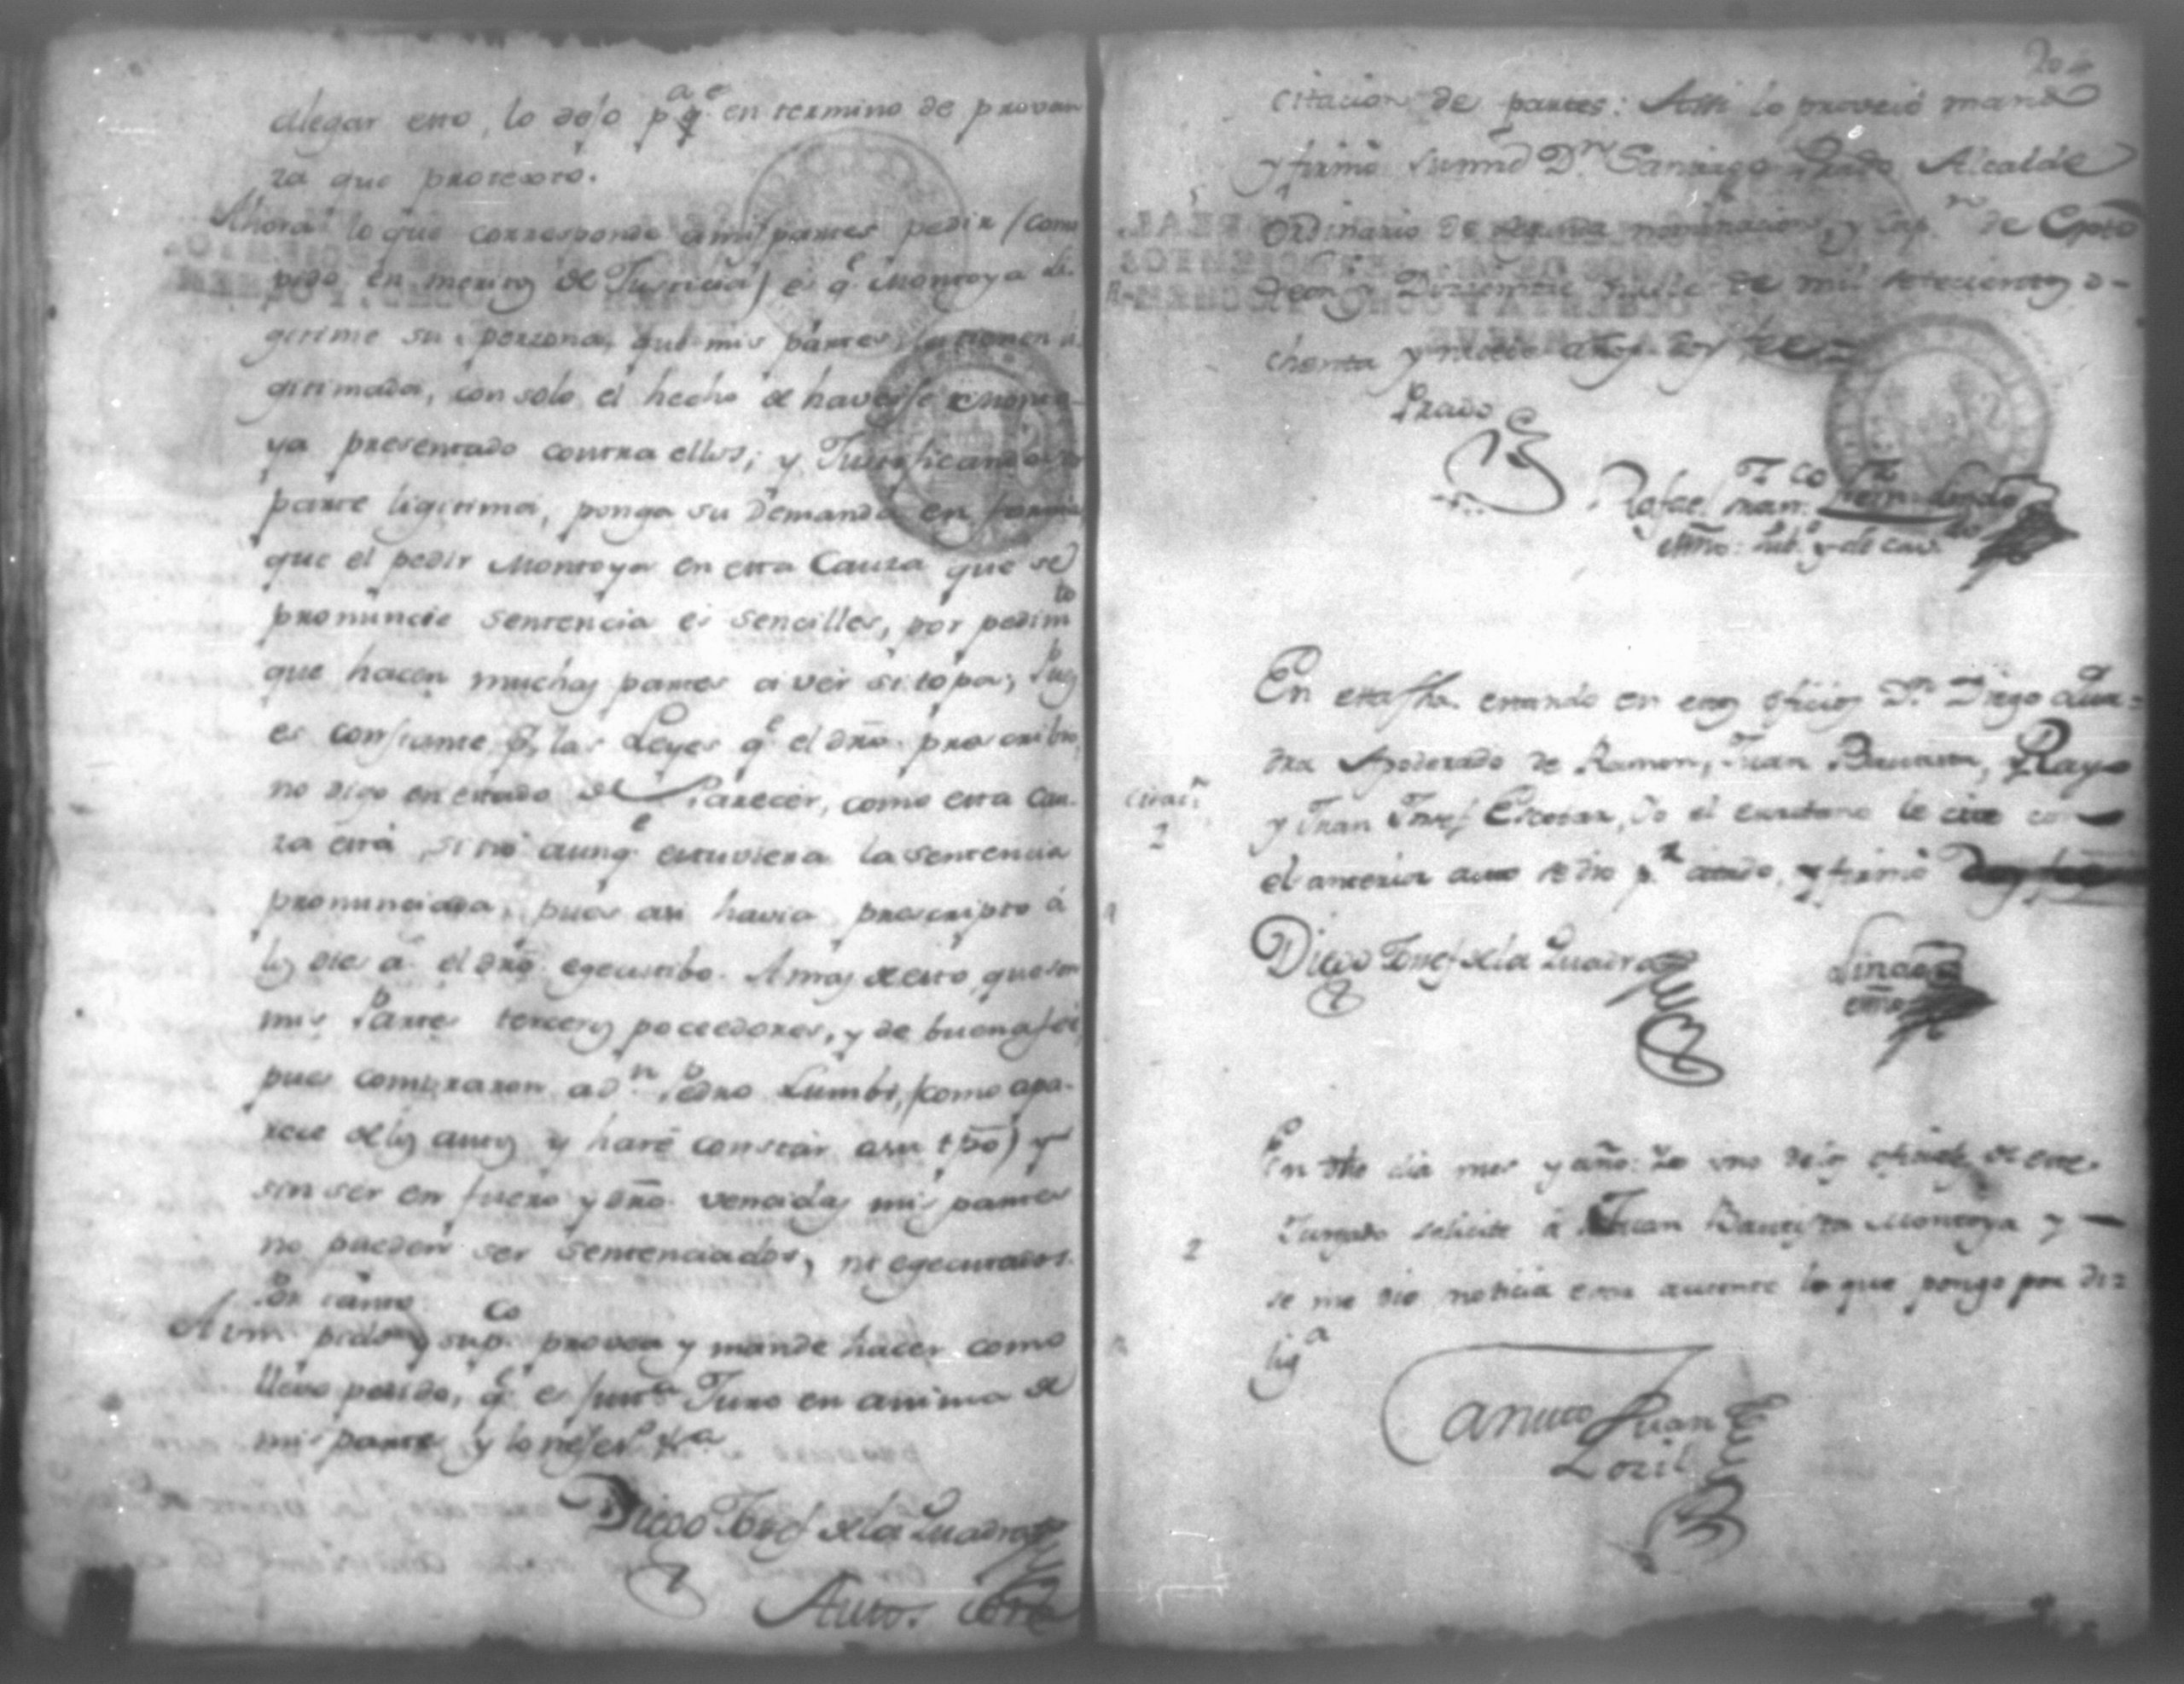 alegar esto, lo dejo p.a q.e en termino de provan
za que protesto.
Ahora lo que corresponde a mis partes pedir (como
pido en merito de Justicia) es q.e Montoya le-
gitime su persona, que mis partes la tienen le-
gitimada, con solo el hecho de haverse Monto-
ya presentado contra ellos; y Justificando ser
parte ligitima, ponga su Demanda en forma
que el pedir Montoya en esta Causa que se
pronuncie sentencia es sencilles, por pedim.to
que hacen muchas partes a ver si topa; Pues
es constante p.r las Leyes q.e el dro. prescribio,
no digo en estado de Parecer, como esta Cau-
za está, si no aunq.e estuviera la sentencia
pronunciada, pues asi havia prescripto á
los dies a.s el dro. egecutibo. A mas de esto que son
mis Partes terceros poceedores, y de buena feé,
pues compraron a D.n Pedro Lumbi, (como apa-
rece de los autos y haré constar a su tpo) y
sin ser en fuero y dro. vencidos mis partes
no pueden ser sentenciados, ni egecutados.
Por tanto
A Vm. pido y sup.co provea y mande hacer como
llevo pedido, q.e es just.a Juro en anima de
mi parte y lo neses.o &.a
Diego Josef de la Quadra
Autos. con
citacion de partes: Assi lo proveió mandó
y firmó su md D.n Santiago Prado Alcalde
Ordinario de segunda nominacion, y Cap.n de
Diciembre de mil setecientos o-
chenta y nueve años doy fee =
Prado
Rafael
esno. pub.o y de cav.do
En esta fha. estando en estos oficios D.n Diego Qua-
dra Apoderado de Ramon, Juan Bautista, Rayo
y Juan Josef Escobar, Yo el escribano le cite co
el anterior auto se dio p.r citado, y firmó doy fee
Citac.n
2
Diego Josef de la Quadra
esno
En dho dia mes y año: Yo uno de los oficiales de este
Juzgado solicite á Juan Bautista Montoya y
2
se me dio noticia estar ausente lo que pongo por di-
lig.a
Canuto Juan